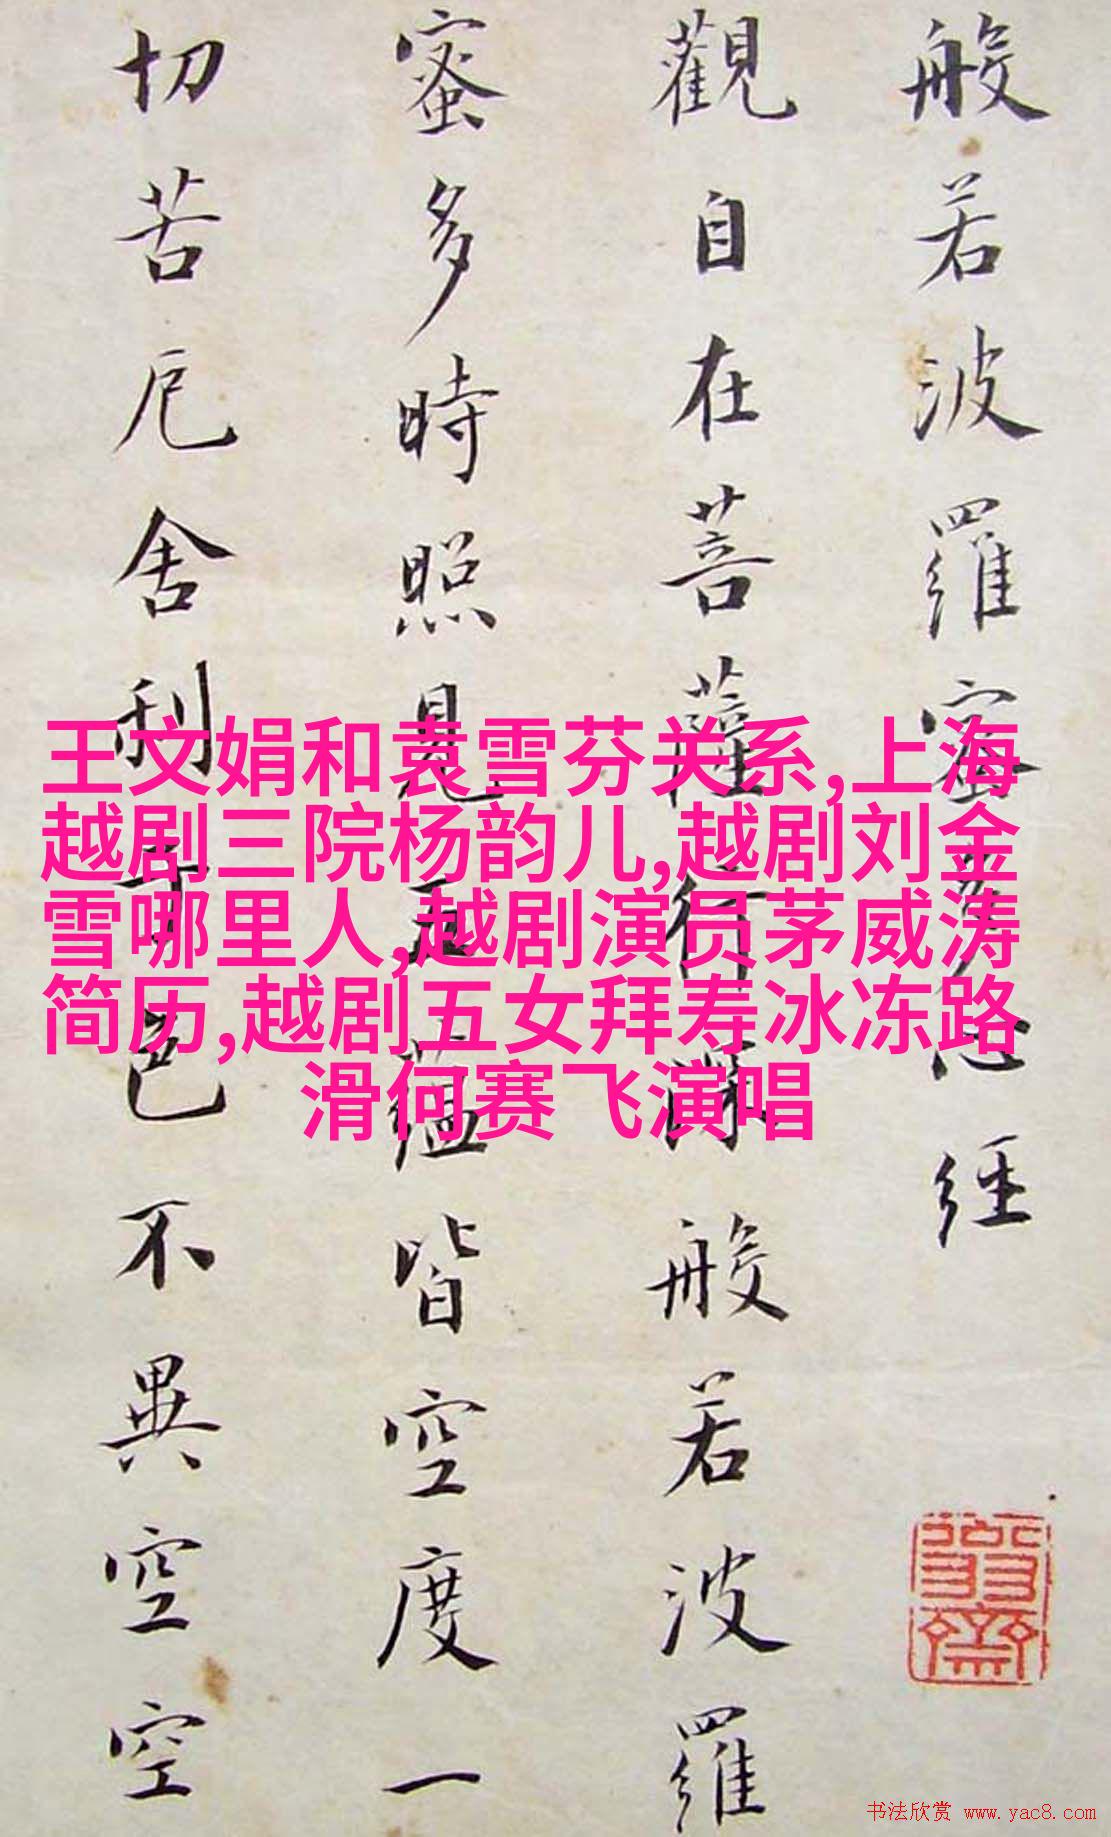 般若波羅蜜多心經
觀自在菩薩行深般若波羅
蜜多時照見五蘊皆空度一
切苦厄舍利子色不異空空
王文娟和袁雪芬关系,上海
越剧三院杨韵儿,越剧刘金
雪哪里人,越剧演员茅威涛
简历,越剧五女拜寿冰冻路
滑何赛飞演唱
书法欣赏 www.yac8.com